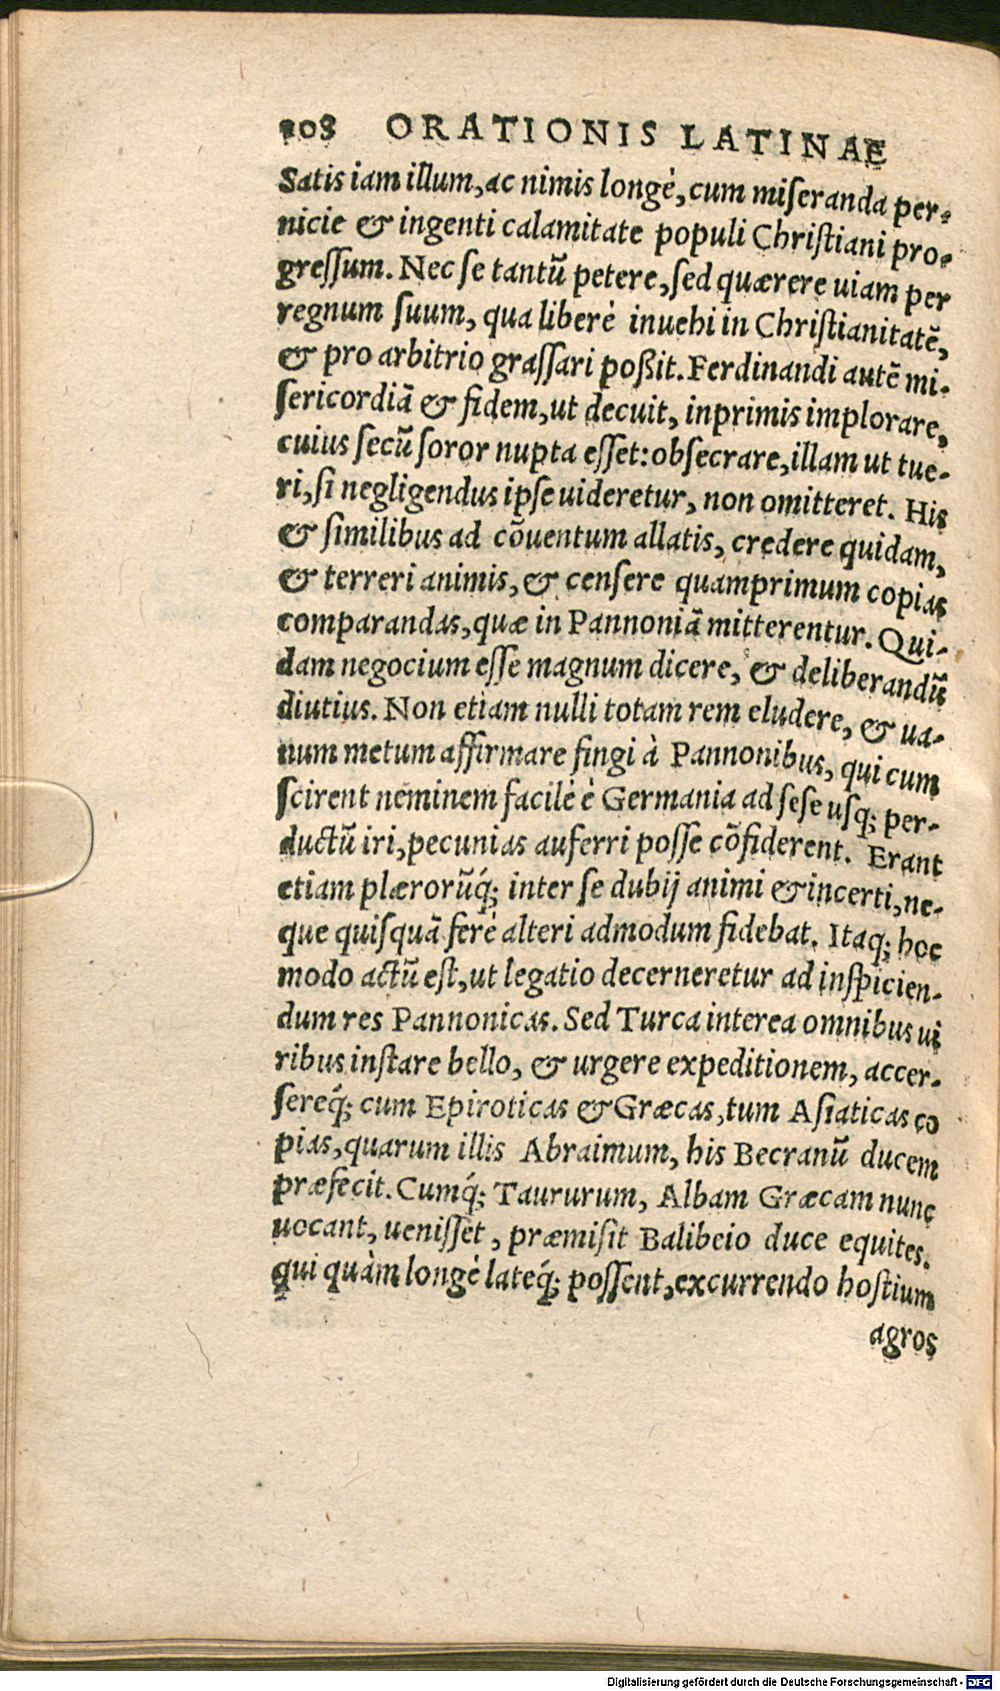 208 ORATIONIS LATINAE
Satis iam illum, ac nimis longè, cum miſeranda per-
nicie & ingenti calamitate populi Chriſtiani pro-
greſſum. Nec ſe tantũ petere, ſed quærere uiam per
regnum ſuum, qua liberè inuehi in Chriſtianitatẽ,
& pro arbitrio graſſari poßit. Ferdinandi autẽ mi-
ſericordiã & fidem, ut decuit, inprimis implorare,
cuius ſecũ ſoror nupta eſſet: obſecrare, illam ut tue-
ri, ſi negligendus ipſe uideretur, non omitteret. His
& ſimilibus ad cõuentum allatis, credere quidam,
& terreri animis, & cenſere quamprimum copias
comparandas, quæ in Pannoniã mitterentur. Qui-
dam negocium eſſe magnum dicere, & deliberandũ
diutius. Non etiam nulli totam rem eludere, & ua-
num metum affirmare fingi à Pannonibus, qui cum
ſcirent neminem facilè è Germania ad ſeſe uſq; per-
ductũ iri, pecunias auferri poſſe cõfiderent. Erant
etiam plærorũq́; inter ſe dubij animi & incerti, ne-
que quiſquã ferè alteri admodum fidebat. Itaq; hoc
modo actũ eſt, ut legatio decerneretur ad inſpicien-
dum res Pannonicas. Sed Turca interea omnibus ui
ribus inſtare bello, & urgere expeditionem, accer-
ſereq́; cum Epiroticas & Græcas, tum Aſiaticas co
pias, quarum illis Abraimum, his Becranũ ducem
præfecit. Cumq́; Taururum, Albam Græcam nunc
uocant, ueniſſet, præmiſit Balibeio duce equites.
qui quàm longè lateq́; poſſent, excurrendo hoſtium
agros
Digitalisierung gefördert durch die Deutsche Forschungsgemeinschaft - DFG